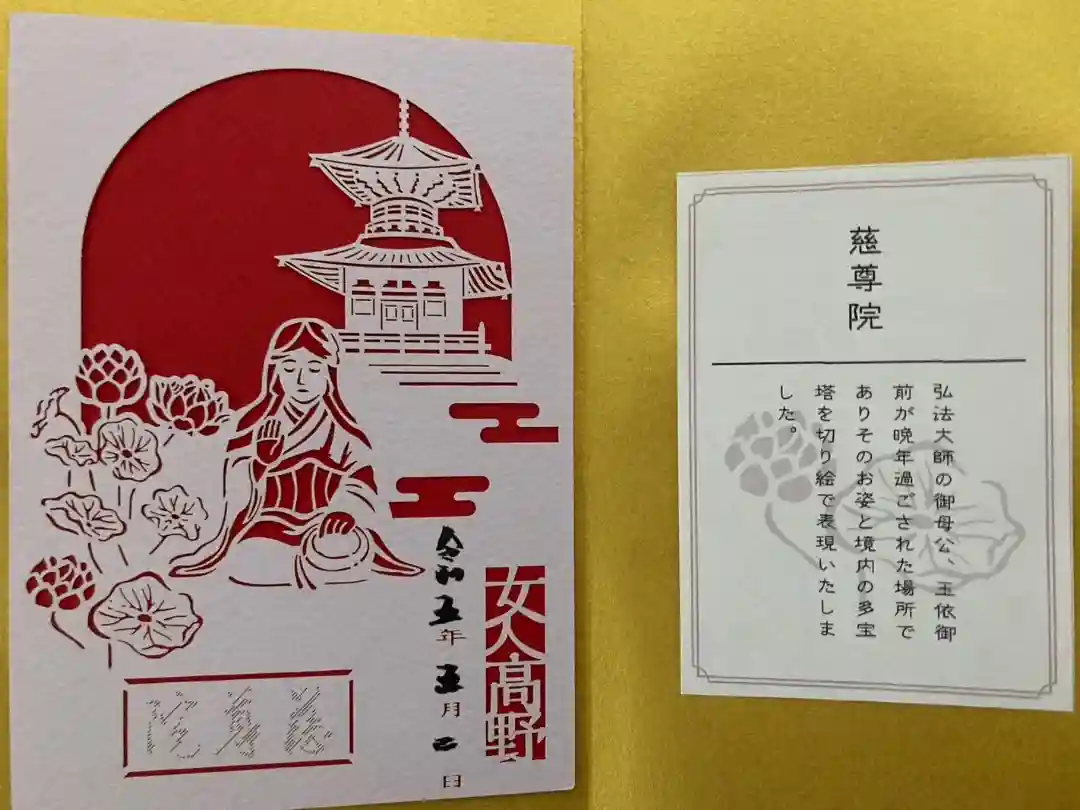 女人髙野
令和五年五月二日
慈尊院
慈尊院
弘法大師の御母公、玉依御
前が晩年過ごされた場所で
ありそのお姿と境内の多宝
塔を切り絵で表現いたしま
した。